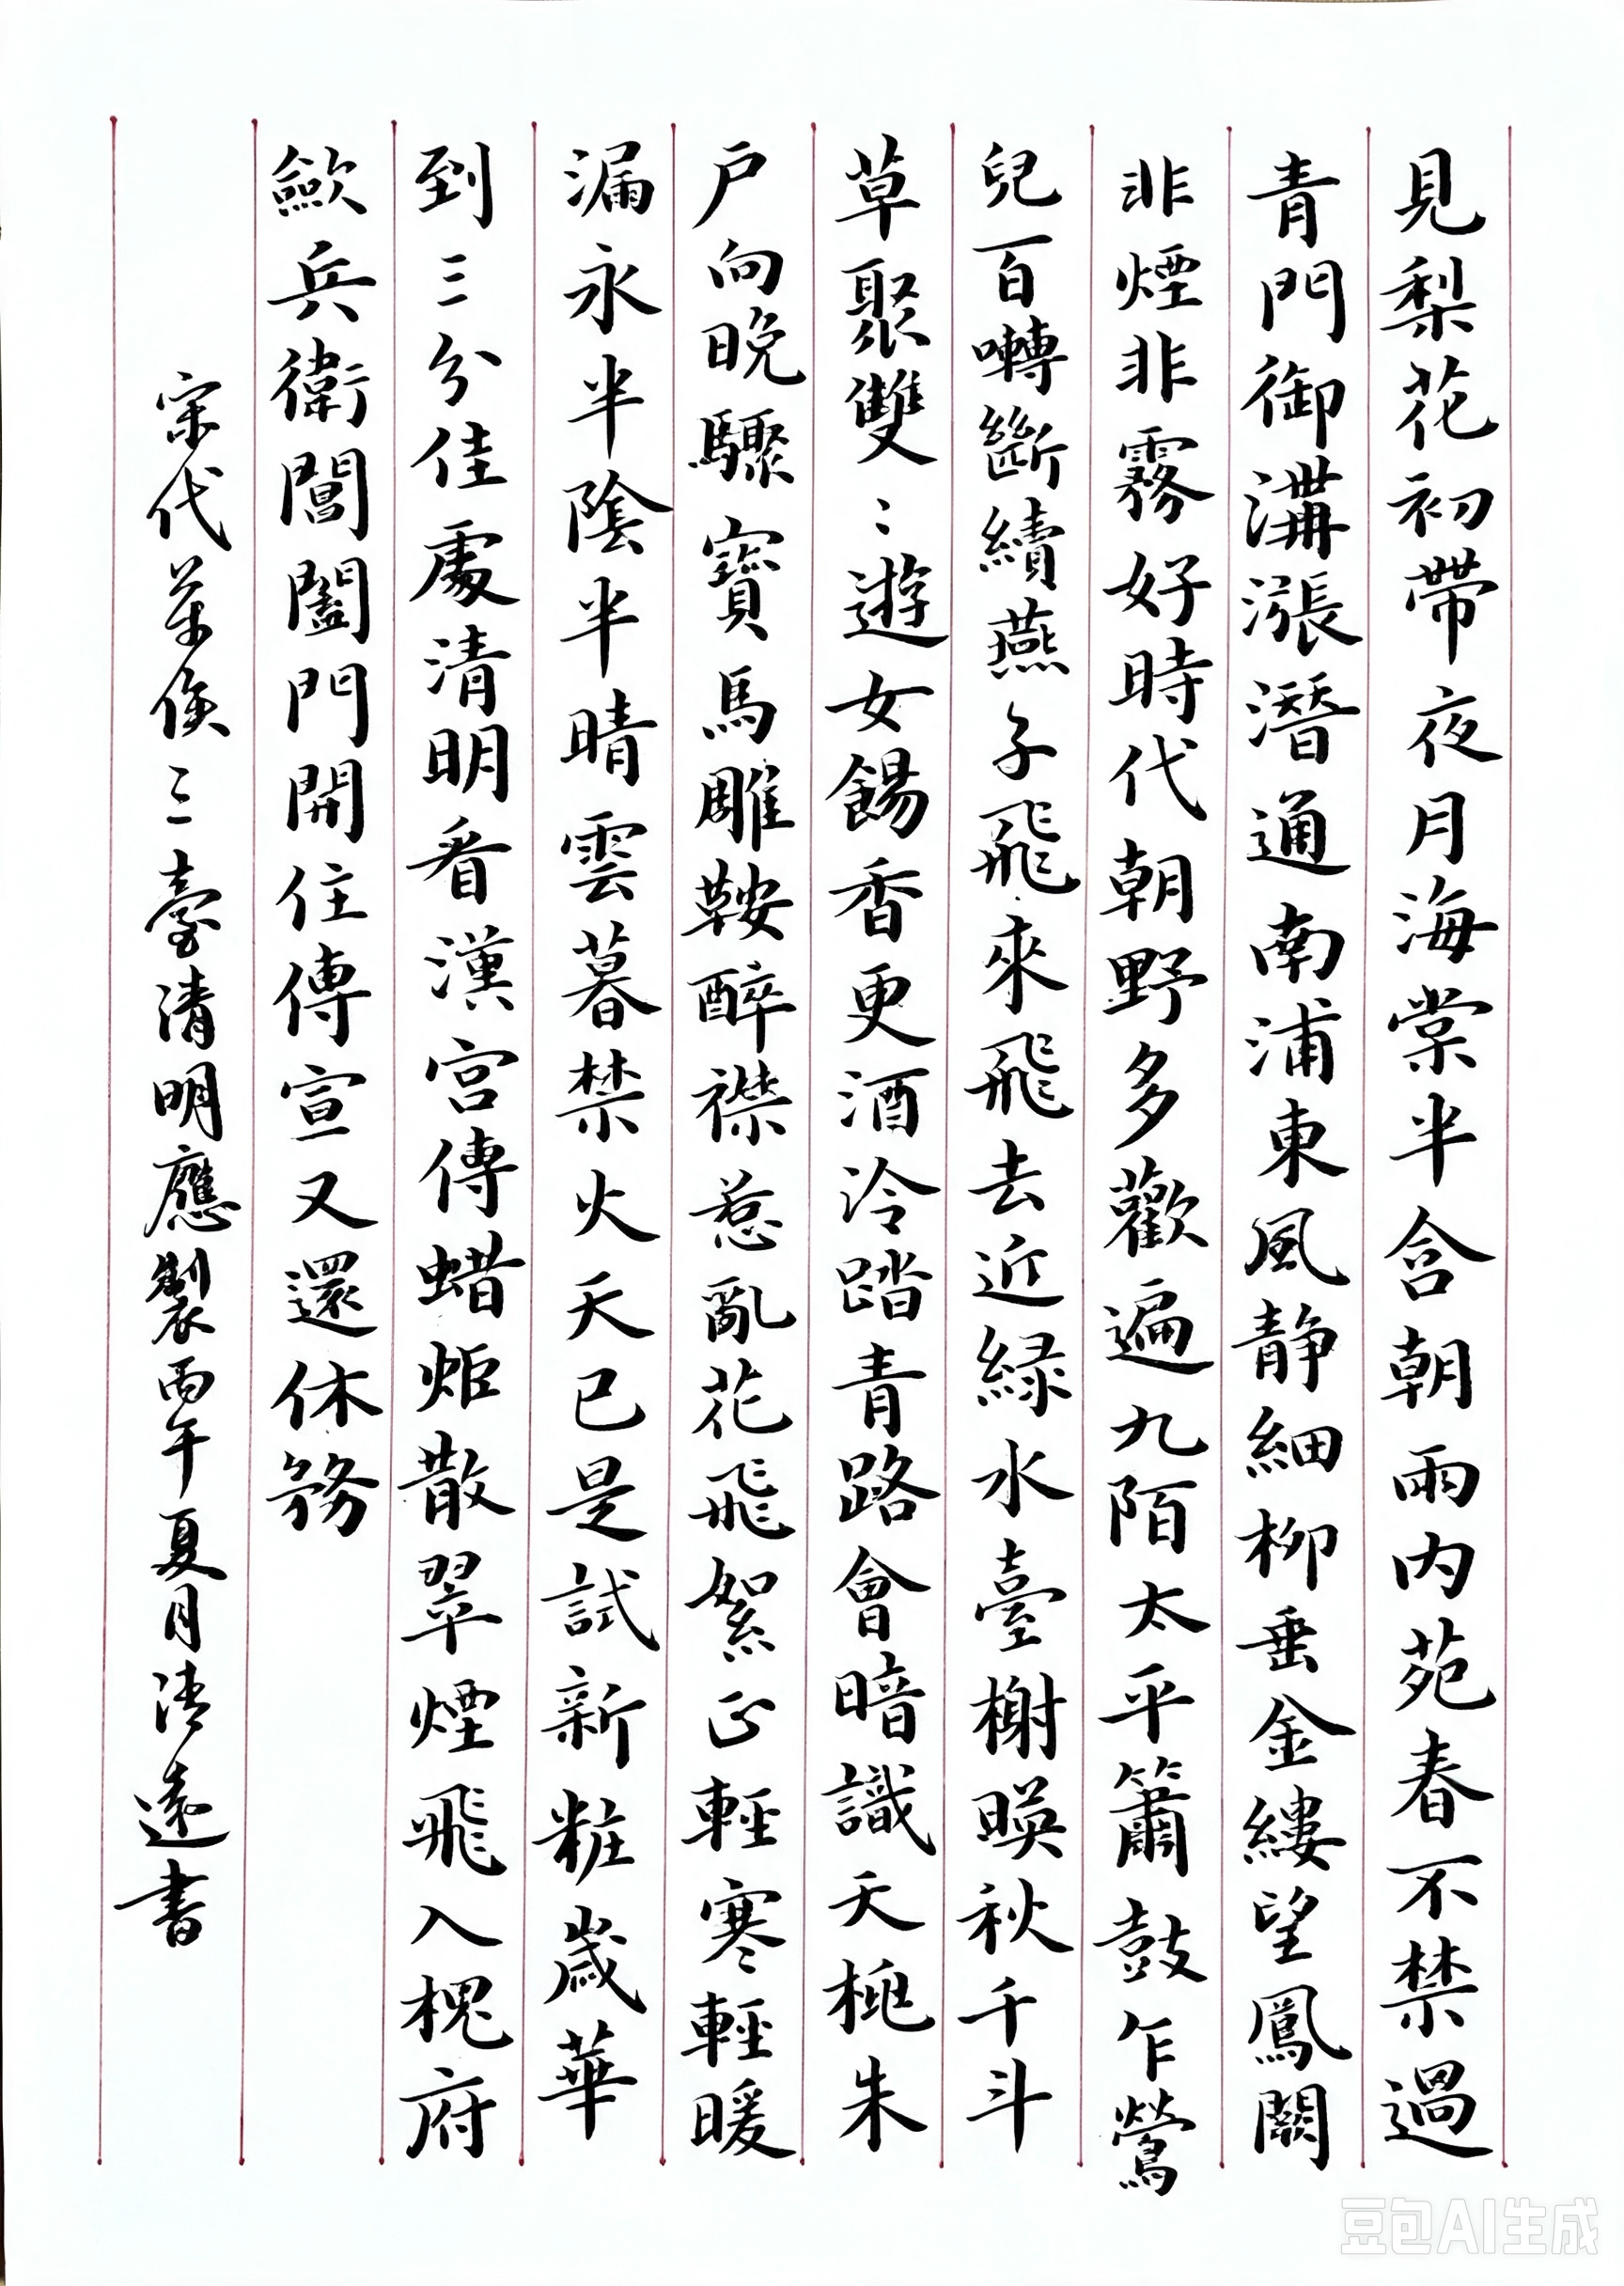 見梨花初帶夜月海棠半含朝雨内苑春不禁過
青門御溝漲潛通南浦東風静細柳垂金縷望鳳闕
非煙非霧好時代朝野多歡遍九陌太平簫鼓乍鶯
兒百囀斷續燕子飛來飛去近緑水臺榭暎秋千斗
草聚雙〻遊女餳香更酒冷踏青路會暗識夭桃朱
戶向晚驟寶馬雕鞍醉襟惹亂花飛絮正輕寒輕暖
漏永半陰半晴雲暮禁火天已是試新粧歲華
到三分佳處清明看漢宮傳蜡炬散翠煙飛入槐府
歛兵衛閶闔門開住傳宣又還休務
宗代萬俟三臺清明應製丙午夏月清遠書
豆包AI生成